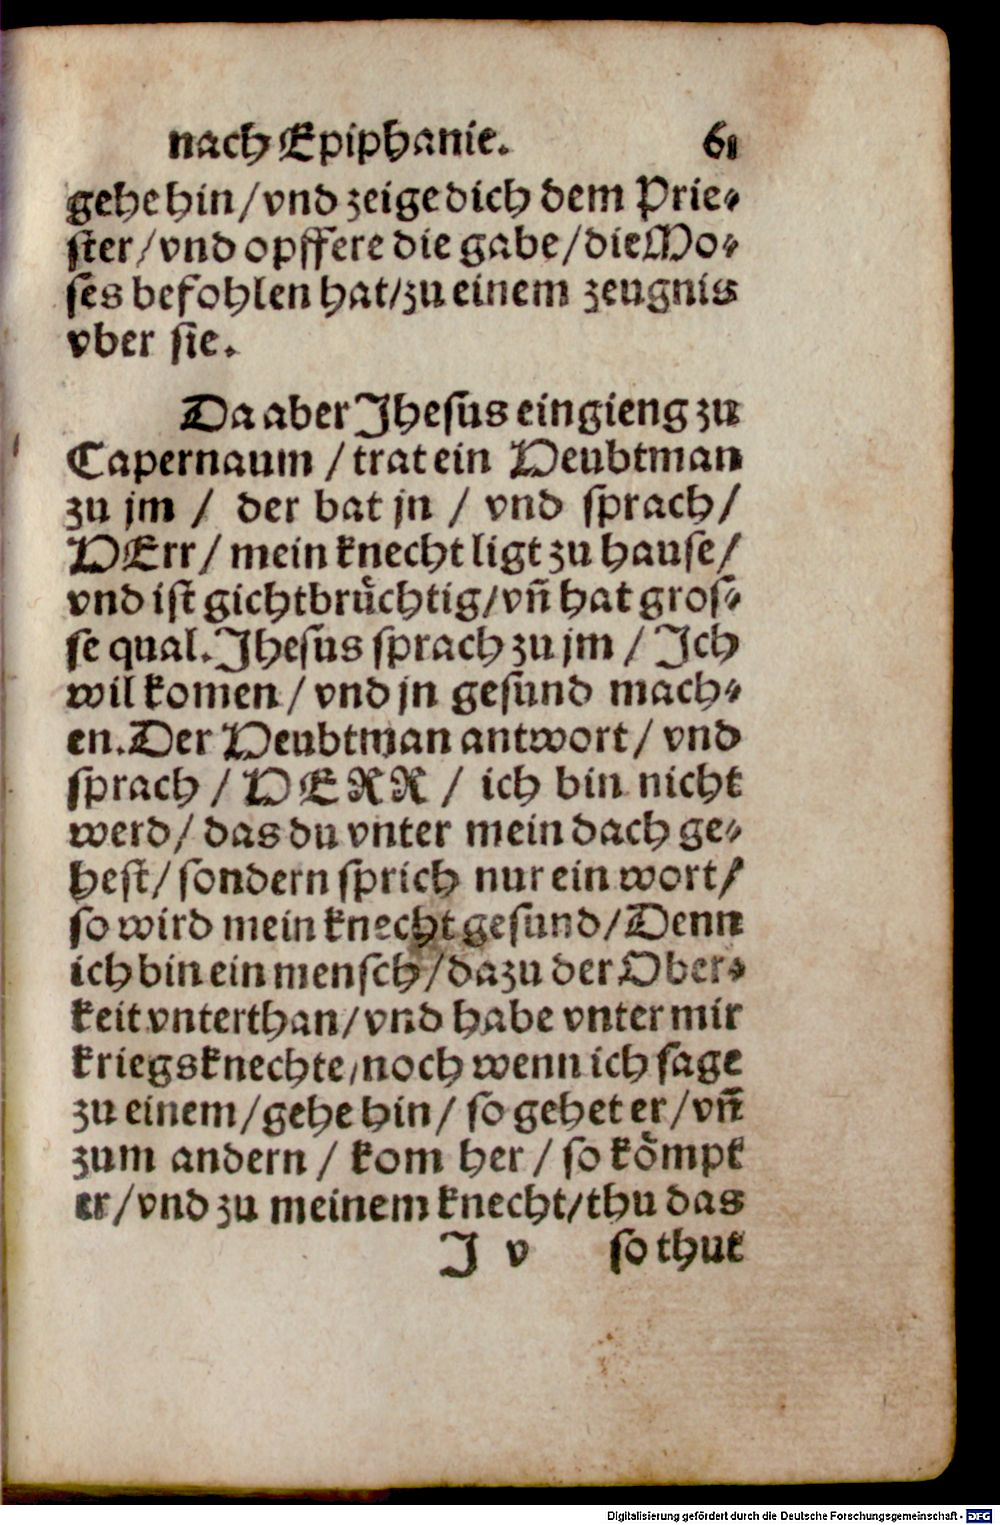 nach Epiphanie. 61
gehe hin / vnd zeige dich dem Prie⸗
ſter / vnd opffere die gabe / die Mo⸗
ſes befohlen hat / zu einem zeugnis
vber ſie.
Da aber Jheſus eingieng zu
Capernaum / trat ein Heubtman
zu jm / der bat jn / vnd ſprach /
HErr / mein knecht ligt zu hauſe /
vnd iſt gichtbruͤchtig / vñ hat groſ⸗
ſe qual. Jheſus ſprach zu jm / Ich
wil komen / vnd jn geſund mach⸗
en. Der Heubtman antwort / vnd
ſprach / HERR / ich bin nicht
werd / das du vnter mein dach ge⸗
heſt / ſondern ſprich nur ein wort /
ſo wird mein knecht geſund / Denn
ich bin ein menſch / dazu der Ober⸗
keit vnterthan / vnd habe vnter mir
kriegsknechte / noch wenn ich ſage
zu einem / gehe hin / ſo gehet er / vñ
zum andern / kom her / ſo koͤmpt
er / vnd zu meinem knecht / thu das
J v ſo thut
Digitalisierung gefördert durch die Deutsche Forschungsgemeinschaft - DFG